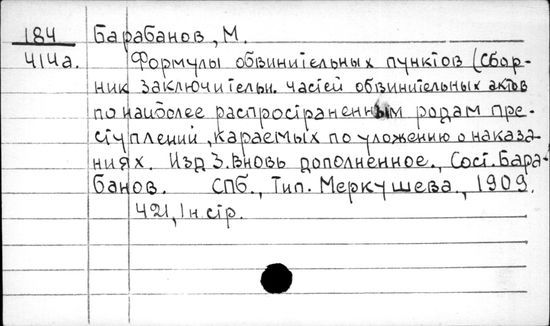 184 Барабанов, М.
414а. Формулы обвинительных пунктов (Сбор-
ник заключительн. частей обвинительных актов
по наиболее распространенным родам пре-
ступлений, караемых по уложению о наказа-
ниях. Изд 3. вновь дополненное., Сост. Бара-
банов. СПб., Тип. Меркушева., 1909.
421, 1 н. стр.